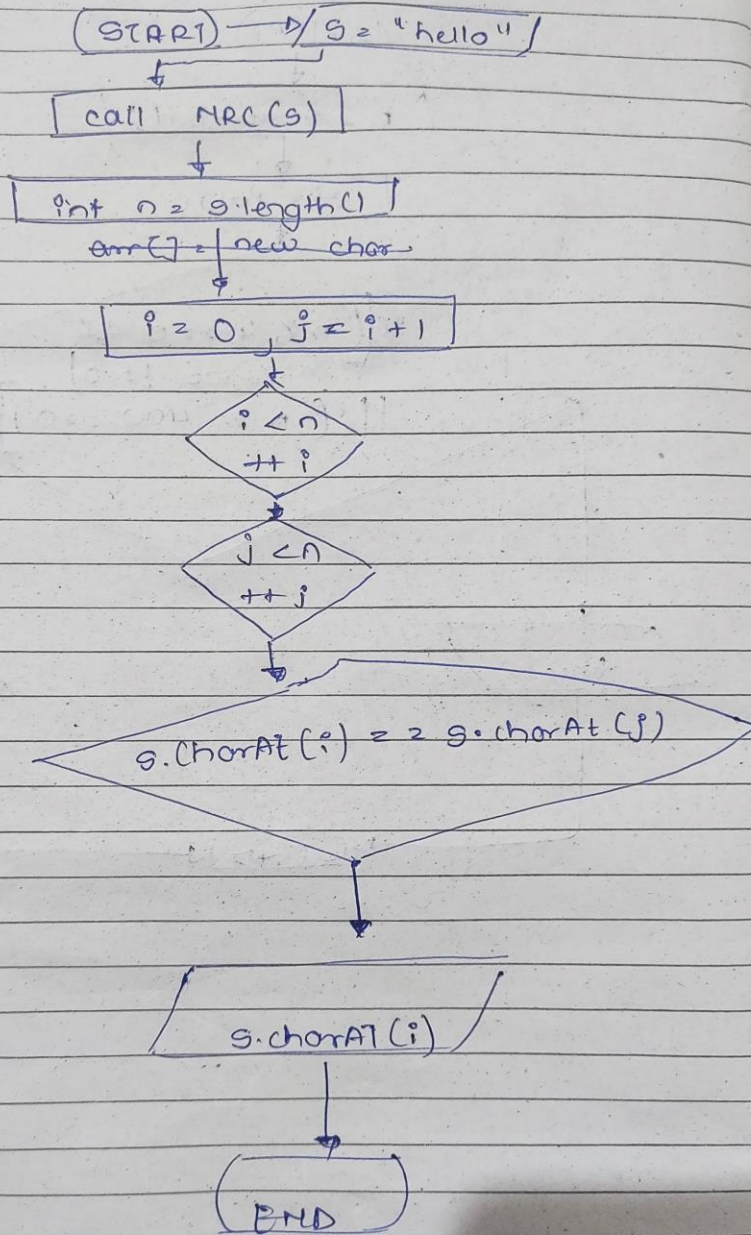 START s = "hello"
call MRC(s)
int n = s.length()
arr[] = new char
i = 0, j = i+1
i < n
++ i
j < n
++ j
s.charAt(i) == s.charAt(j)
s.charAT(i)
END